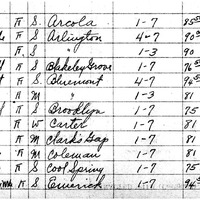 R S. Arcola 1-7 85
R S. Arlington 4-7 90
R S. " 1-3 90
R S. Blakeley Grove 1-7 76
R S. Bluemont 4-7 94
R M " 1-3 81
R S. Brooklyn 1-7 75
R W Carter 1-7 81
R M Clarks Gap 1-7 81
R M Coleman 1-7 81
R S Cool Spring 1-7 75
R S Emerick 1-7 94